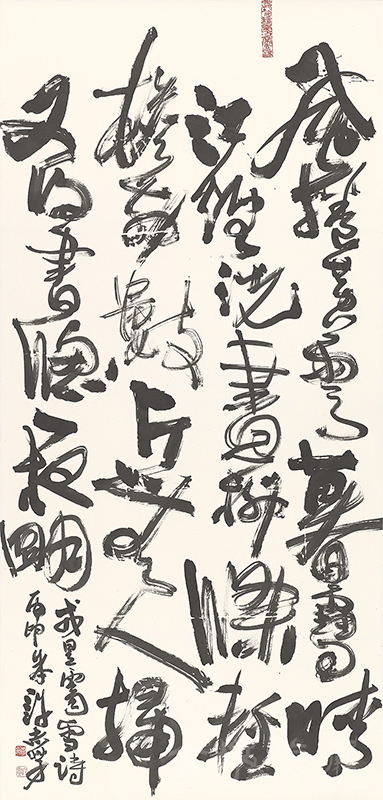 風捲寒雲暮雪晴
江煙洗盡柳條輕
檐前數片無人掃
又得書窗一夜明
戎昱霽雪詩